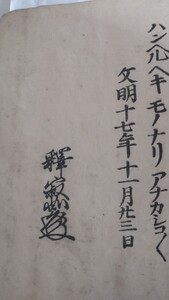 ハンヘルヘキ モノナリ アナカシコ〱
文明十七年十一月廿三日
釋寂如